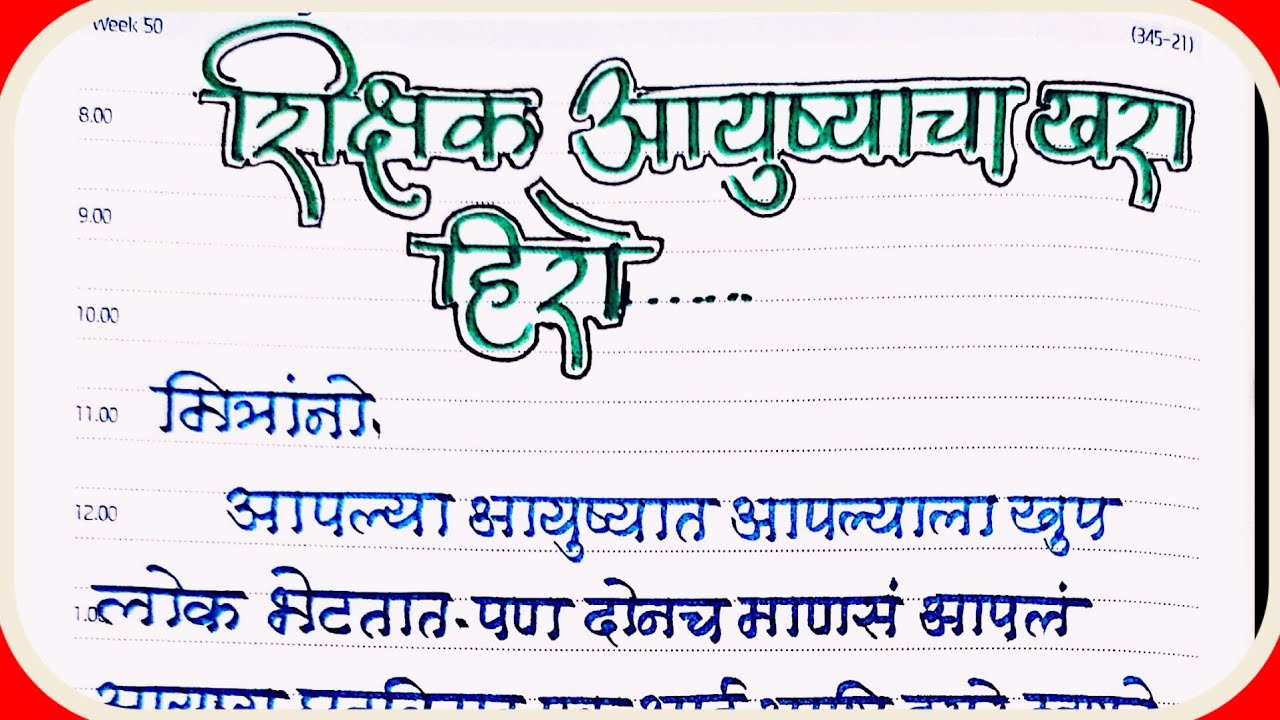 Week 50
(345-21)
8.00
शिक्षक आयुष्याचा खरा
9.00
हिरो......
10.00
11.00
मित्रांनो.
12.00
आपल्या आयुष्यात आपल्याला खुप
1.00
लोक भेटतात. पण दोनच माणसं आपलं